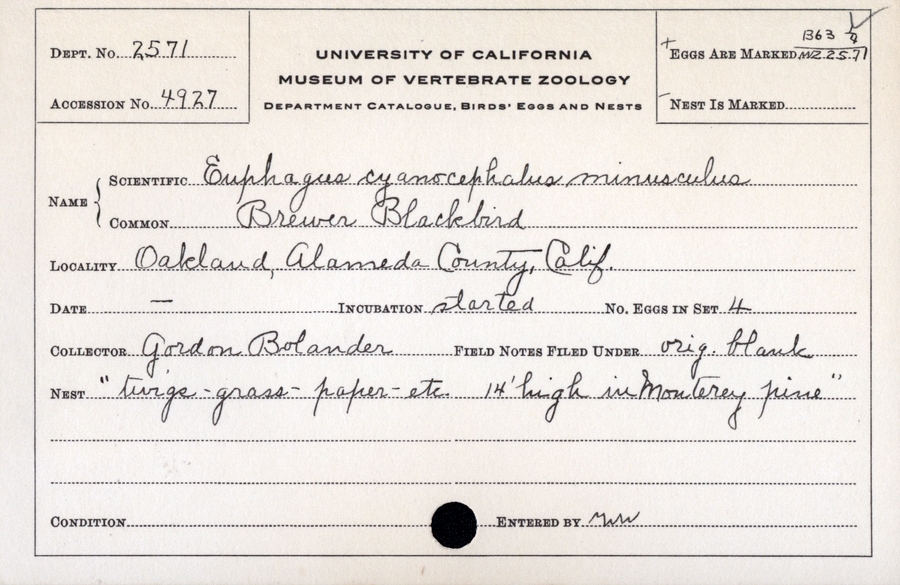 Dept. No. 2571
Accession No. 4927
UNIVERSITY OF CALIFORNIA
MUSEUM OF VERTEBRATE ZOOLOGY
Department Catalogue, Birds' Eggs and Nests
B63
Eggs Are Marked MVZ 2571
Nest Is Marked
Name
Scientific Euphagus cyanocephalus minusculus
Common Brewer Blackbird
Locality Oakland, Alameda County, Calif.
Date — Incubation started No. Eggs in Set 4
Collector Gordon Bolander Field Notes Filed Under orig. blank
Nest "twigs - grass - paper - etc. 14' high in Monterey pine"
Condition Entered by